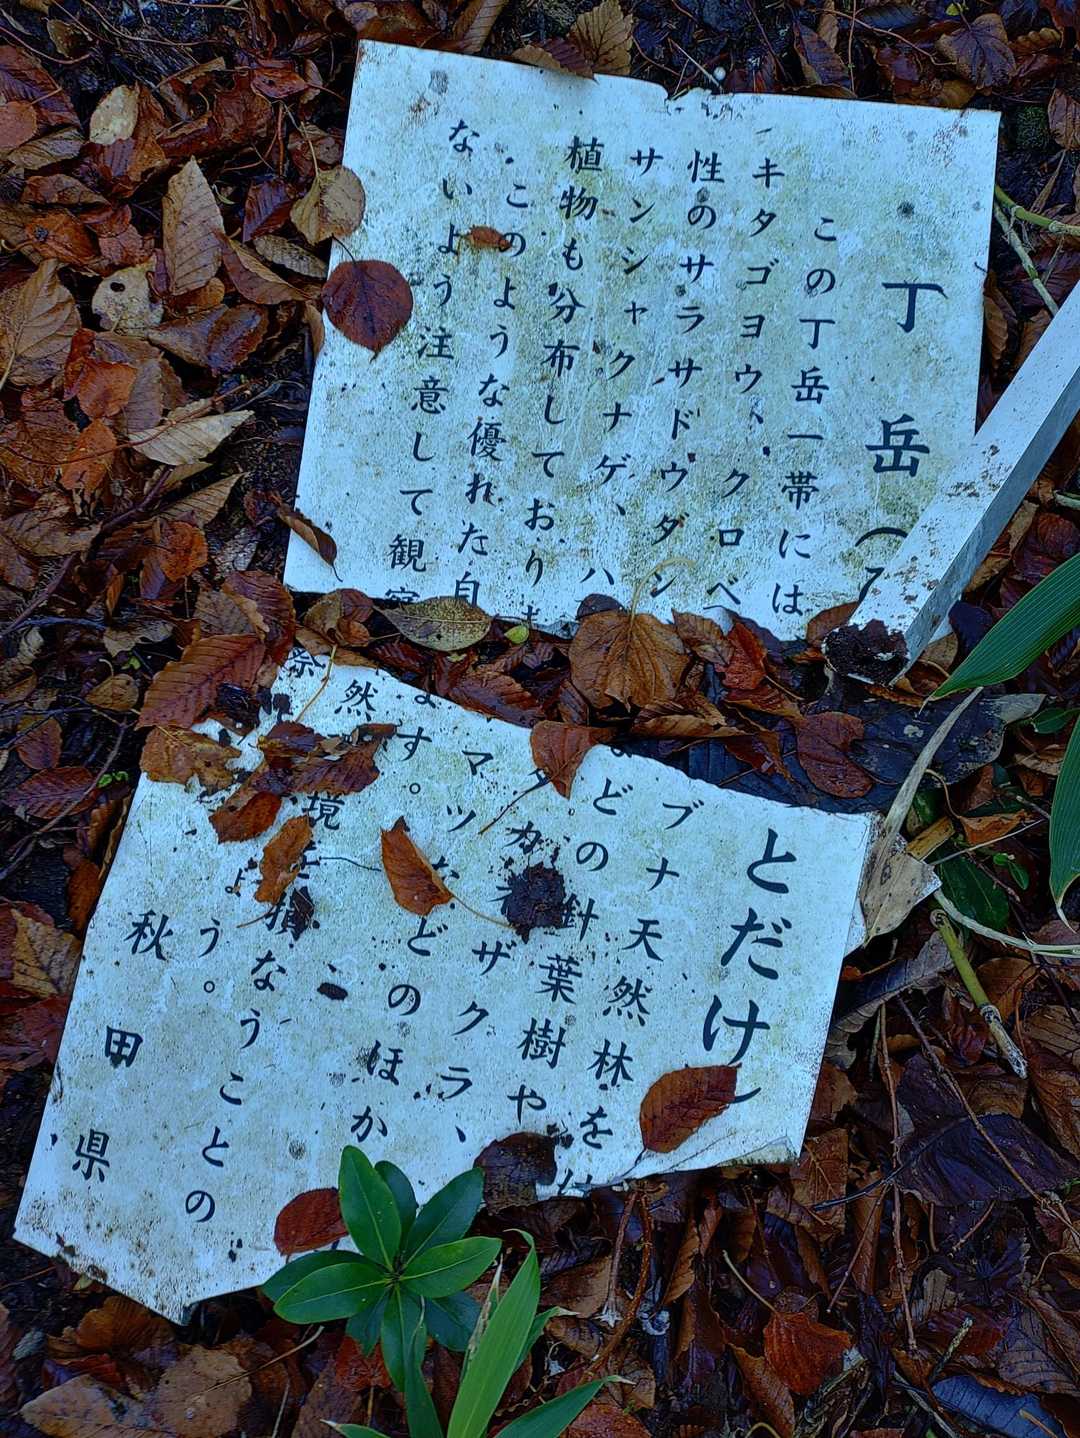 丁岳（
この丁岳一帯には
キタゴヨウ、クロベ
性のサラサドウダン
サンシャクナゲ、ハ
植物も分布しており
このような優れた自
ないよう注意して観察
とだけ
ブナ天然林を
どの針葉樹や
タカネザクラ、
マツなどのほか
す。
然 境 損なうことの
う。
秋田県